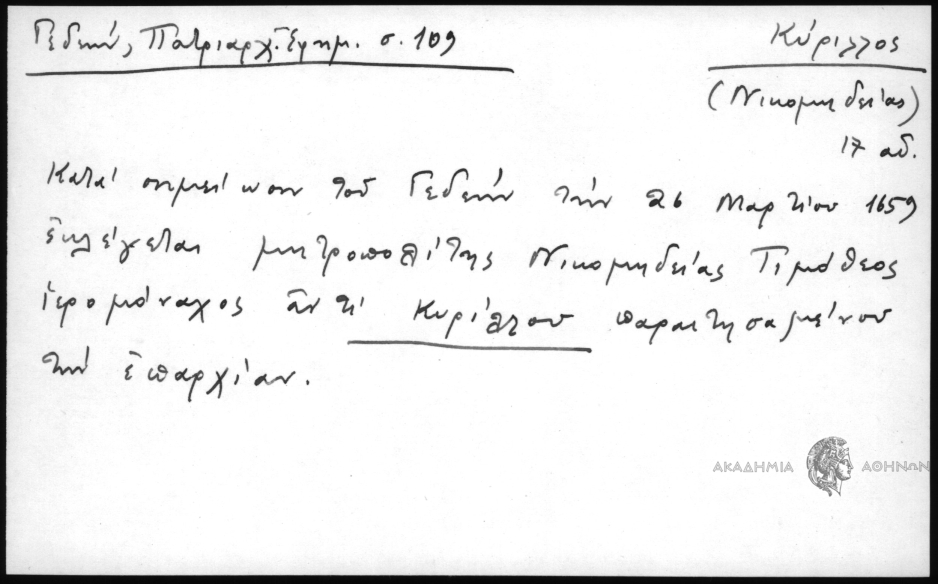 Γεδεών, Πατριαρχ. Εφημ. σ. 109
Κύριλλος
(Νικομηδείας)
17 αι.
Κατά σημείωσιν τοῦ Γεδεών τήν 26 Μαρτίου 1659
ἐκλέγεται μητροπολίτης Νικομηδείας Τιμόθεος
ἱερομόναχος ἀντί Κυρίλλου παραιτησαμένου
τήν ἐπαρχίαν.
ΑΚΑΔΗΜΙΑ ΑΘΗΝΩΝ